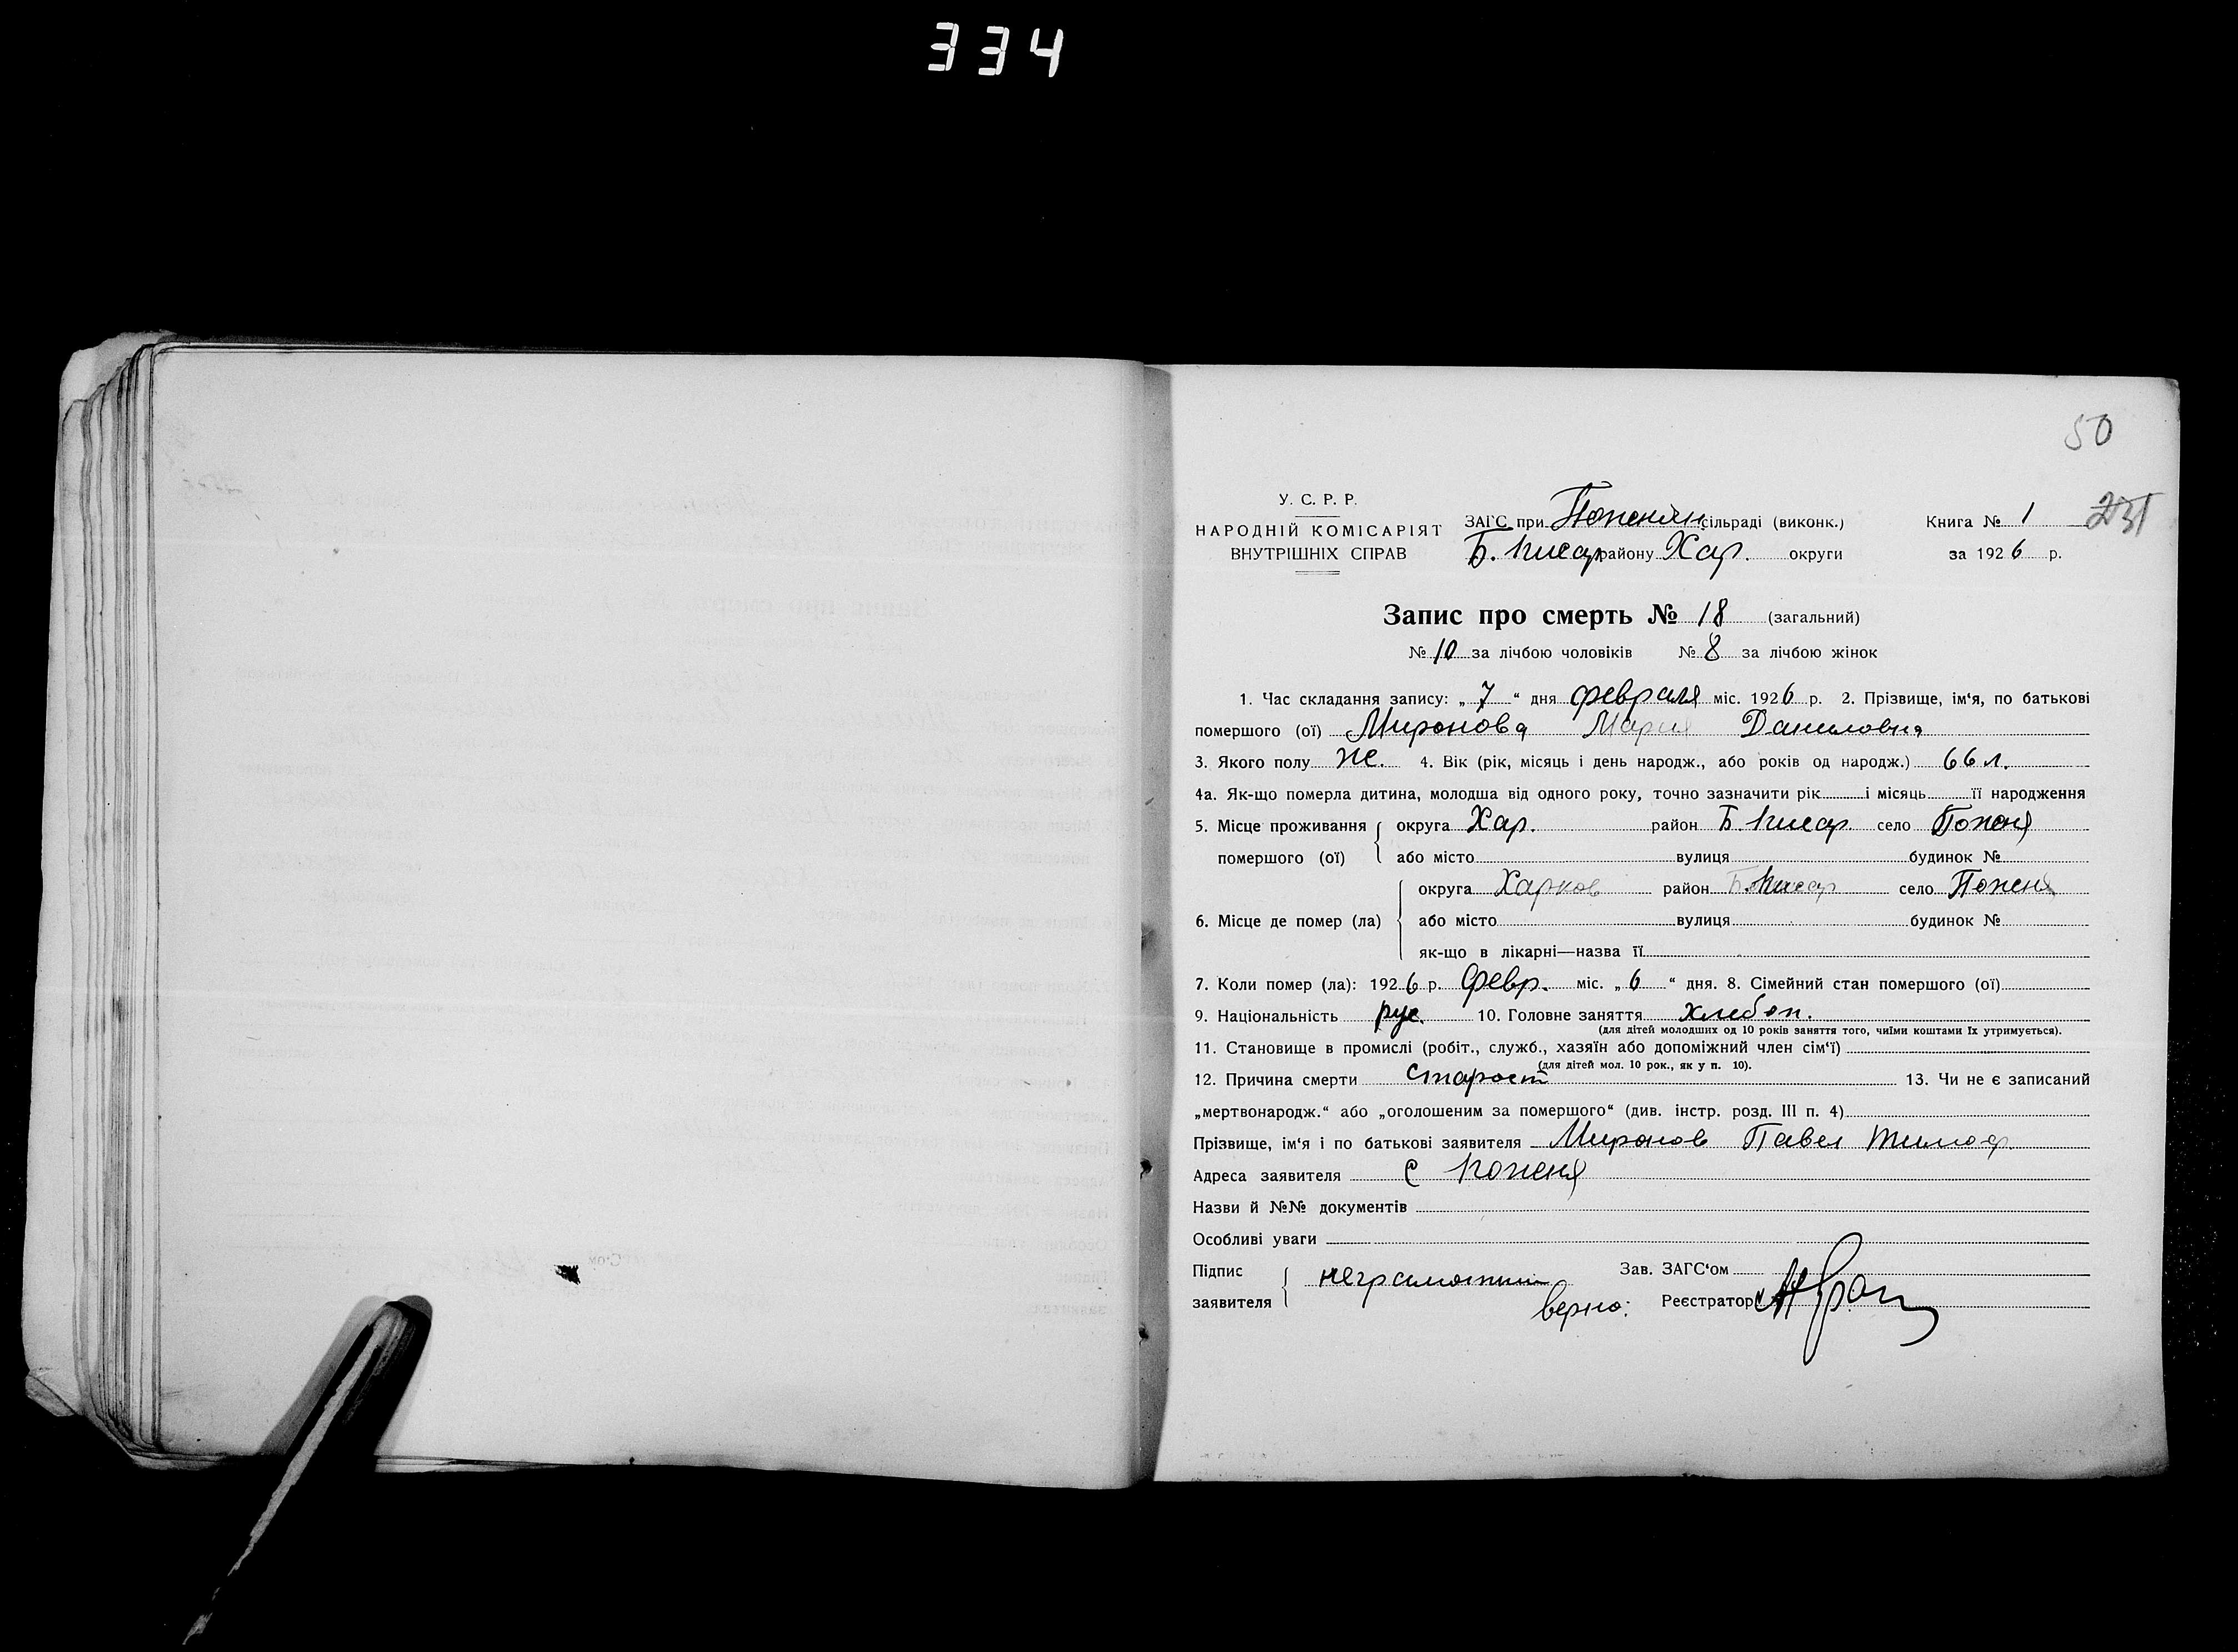 334
50
У. С. Р. Р.
НАРОДНІЙ КОМІСАРІЯТ
ВНУТРІШНІХ СПРАВ
ЗАГС при сільраді (виконк.)
Б. Писар району Хар. округи
Книга № 1
231
за 1926 р.
Запис про смерть № 18 (загальний)
№ 10 за лічбою чоловіків № 8 за лічбою жінок
1. Час складання запису: „ 7 “ дня февраля міс. 1926 р. 2. Прізвище, ім‘я, по батькові
помершого (ої) Миронова Мария Даниловна
3. Якого полу ж. 4. Вік (рік, місяць і день народж., або років од народж.) 66 л.
4а. Як-що померла дитина, молодша від одного року, точно зазначити рік і місяць її народження
5. Місце проживання помершого (ої) округа Хар. район Б. Писар. село
або місто вулиця будинок №
6. Місце де помер (ла) округа Харков район Б. Писар село
або місто вулиця будинок №
як-що в лікарні—назва її
7. Коли помер (ла): 1926 р. Февр. міс. „ 6 “ дня. 8. Сімейний стан помершого (ої)
9. Національність рус. 10. Головне заняття хлебоп.
(для дітей молодших од 10 років заняття того, чиїми коштами їх утримується).
11. Становище в промислі (робіт., служб., хазяїн або допоміжний член сім‘ї)
(для дітей мол. 10 рок., як у п. 10).
12. Причина смерти старост 13. Чи не є записаний
„мертвонародж.“ або „оголошеним за помершого“ (див. інстр. розд. III п. 4)
Прізвище, ім‘я і по батькові заявителя Миронов Павел Тимоф.
Адреса заявителя с
Назви й №№ документів
Особливі уваги
Підпис заявителя неграмотный Зав. ЗАГС‘ом
верно: Реєстратор